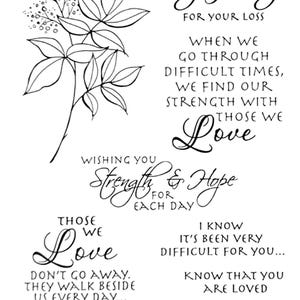 FOR YOUR LOSS
WHEN WE
GO THROUGH
DIFFICULT TIMES,
WE FIND OUR
STRENGTH WITH
THOSE WE
Love
WISHING YOU
Strength & Hope
FOR
EACH DAY
THOSE
WE
Love
DON'T GO AWAY.
THEY WALK BESIDE
US EVERY DAY...
I KNOW
IT'S BEEN VERY
DIFFICULT FOR YOU...
KNOW THAT YOU
ARE LOVED